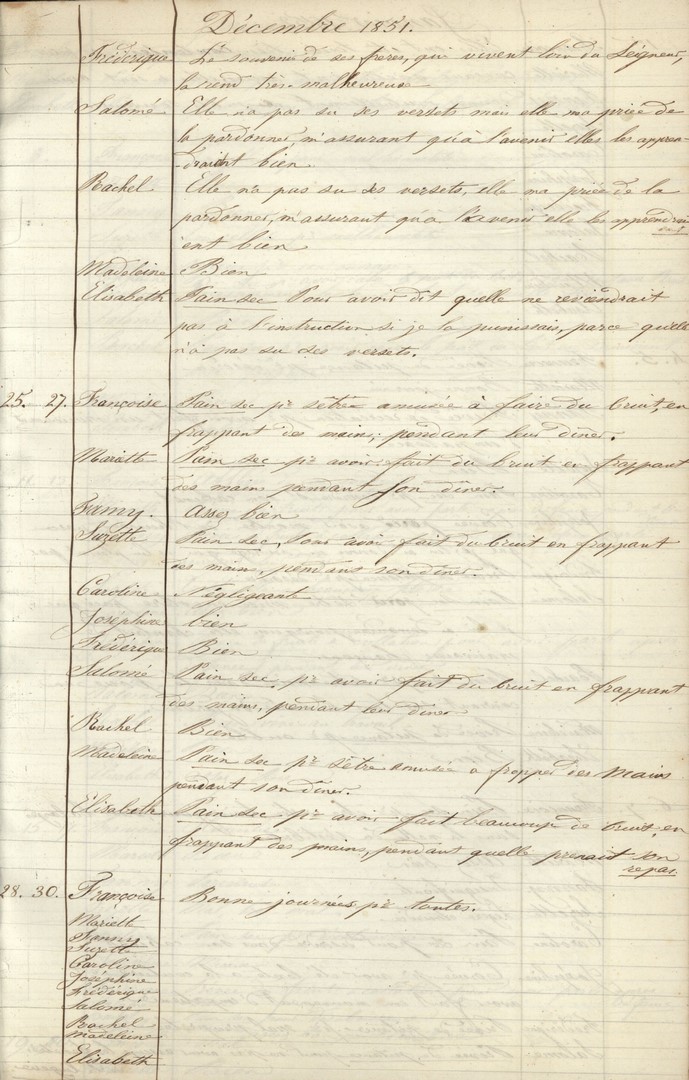 Décembre 1851.
Frédérique Le souvenir de ses frères, qui vivent loin du Seigneur,
la rend très-malheureuse
Salomé Elle n'a pas su ses versets mais elle m'a priée de
la pardonner, m'assurant qu'à l'avenir elles les appren-
-draient bien
Rachel Elle n'a pas su ses versets, elle m'a priée de la
pardonner, m'assurant qu'à l'avenir elle les apprendrai
ent bien
Madeleine Bien
Elisabeth Pain sec Pour avoir dit quelle ne reviendrait
pas à l'instruction si je la punissais, parce quelle
n'a pas su ses versets.
25. 27. Françoise Pain sec pr s'être amusée à faire du bruit, en
frappant des mains, pendant leur dîner.
Mariette Pain sec pr avoir fait du bruit en frappant
des mains pendant son dîner.
Fanny. Assez bien
Suzette Pain sec, Pour avoir fait du bruit en frappant
des mains, pendant son dîner.
Caroline Négligeante
Joséphine bien
Frédérique Bien
Salomé Pain sec pr avoir fait du bruit en frappant
des mains, pendant leur dîner
Rachel Bien
Madeleine Pain sec pr s'être amusée a frapper des mains
pendant son dîner.
Elisabeth Pain sec pr avoir fait beaucoup de bruit, en
frappant des mains, pendant quelle prenait son
repas.
28. 30. Françoise Bonne journées pr toutes.
Mariette
Fanny
Suzette
Caroline
Joséphine
Frédérique
Salomé
Rachel
Madeleine
Elisabeth